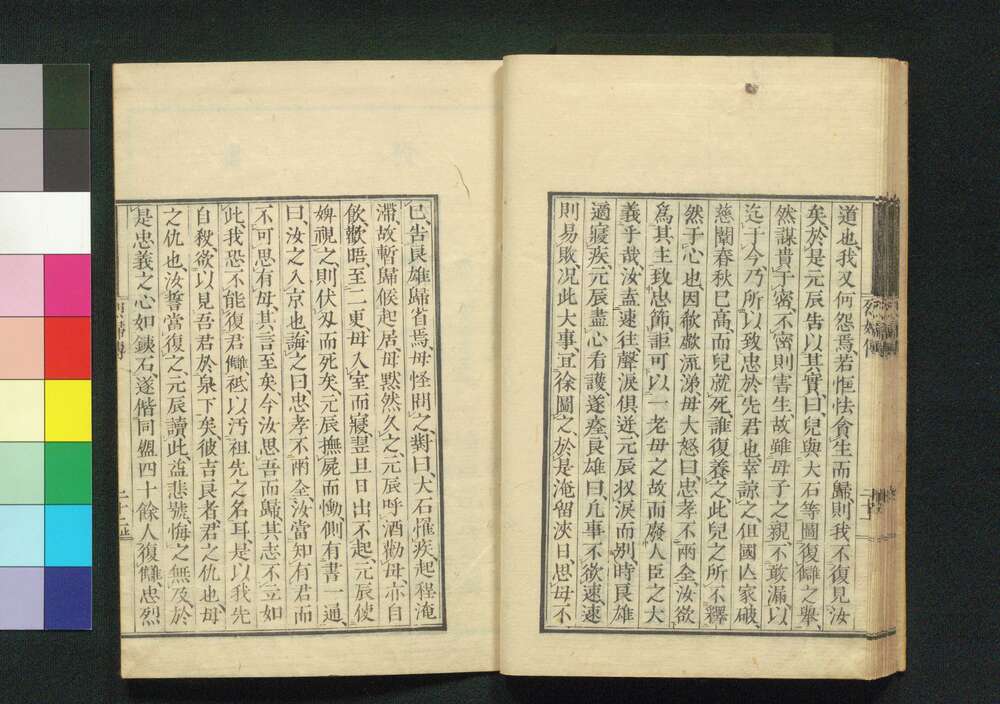 道也、我又何怨焉若恇怯貪生而歸、則我不復見汝
矣、於是元辰告以其實、曰、兒與大石等圖復讎之擧、
然謀貴于密、不密則害生、故雖母子之親、不敢漏、以
迄于今、乃所以致忠於先君也、幸諒之、但國亾家破、
慈闈春秋已高、而兒就死、誰復養之、此兒之所不釋
然于心也、因欷歔流涕、母大怒曰、忠孝不兩全、汝欲
爲其主致忠節、詎可以一老母之故而廢人臣之大
義乎哉、汝盍速往、聲淚俱迸、元辰収淚而別、時良雄
適寢疾、元辰盡心看護、遂痊、良雄曰、凡事不欲速、速
則易敗、况此大事、宜徐圖之、於是淹留浹日、思母不
已、告良雄歸省焉、母怪問之、對曰、大石罹疾、起程淹
滯、故暫歸候起居、母黙然久之、元辰呼酒勸母、母亦自
飲、歡晤至二更、母入室而寢、翌旦日出不起、元辰使
婢視之、則伏刄而死矣、元辰撫屍而慟、側有書一通、
曰、汝之入京也、誨之曰、忠孝不兩全、汝當知有君而
不可思有母、其言至矣、今汝思吾而歸、其志不立如
此、我恐不能復君讎、祇以汚祖先之名耳、是以我先
自殺、欲以見吾君於泉下矣、彼吉良者、君之仇也、母
之仇也、汝誓當復之、元辰讀此、益悲號、悔之無及、於
是忠義之心如鐵石、遂偕同盟四十餘人復讎、忠烈